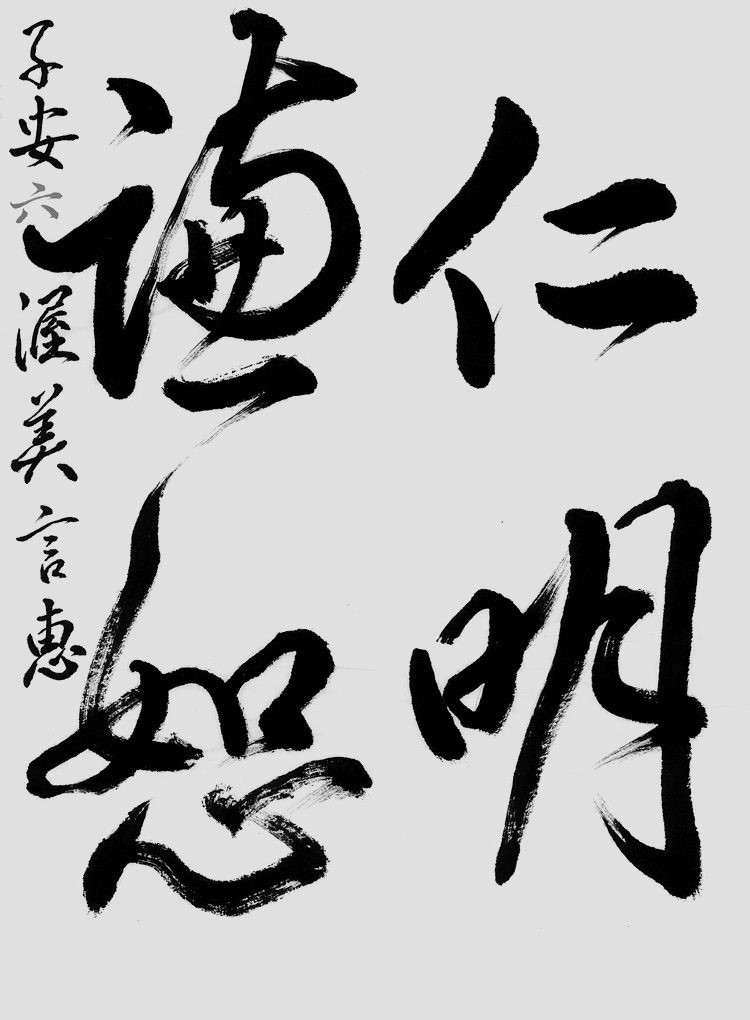 仁明
謙恕
子安六 渥美言恵